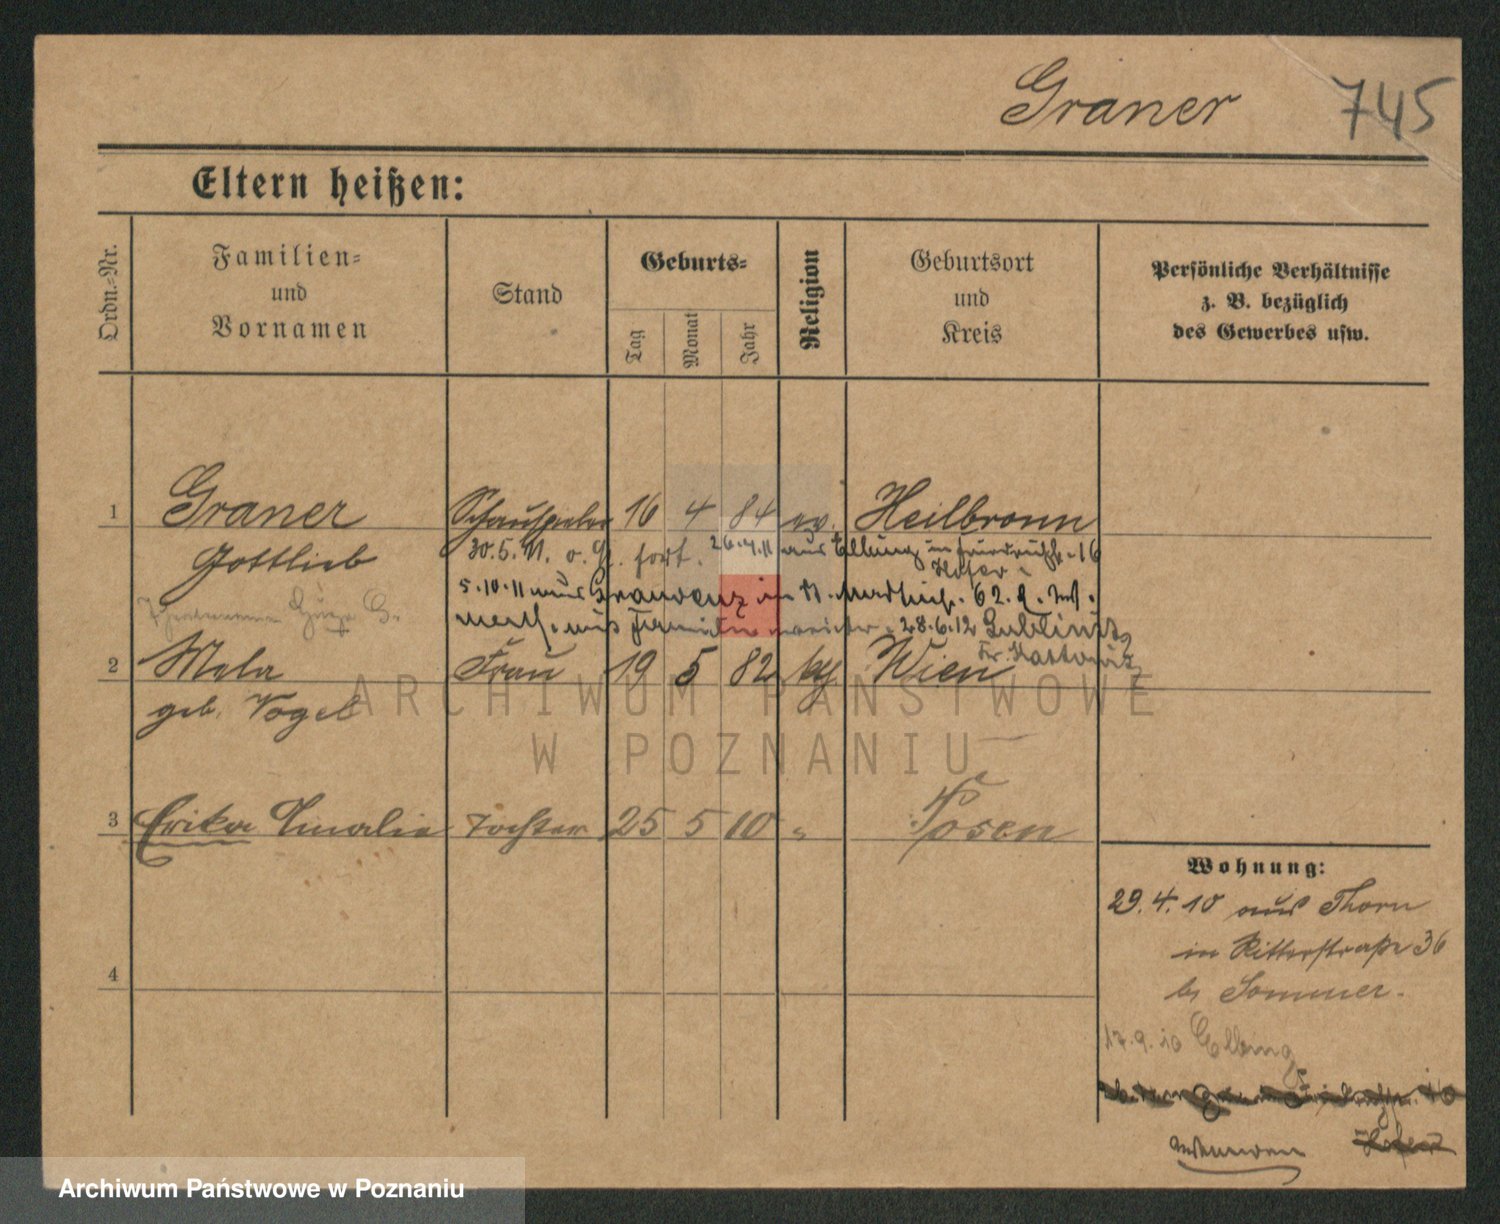 Graner 745
Eltern heißen:
Ordn.-Nr.
Familien-
und
Vornamen
Stand
Geburts-
Tag
Monat
Jahr
Religion
Geburtsort
und
Kreis
Persönliche Verhältnisse
z. B. bezüglich
des Gewerbes usw.
1 Graner Schauspieler 16 4 84 ev. Heilbronn
Gottlieb 30.5.11. fort. 26.4.11 aus Elbing in 16
Hofer
5.10.11 aus Graudenz in 62.
28.6.12 Lublinitz
Kr. Kattowitz
2 Mela Frau 19 5 82 Wien
geb. Vogel
3 Erika Amalie Tochter 25 5 10 " Posen
4
Wohnung:
29.4.10 aus Thorn
in Ritterstraße 36
b. Sommer.
17.9.10 Elbing
ARCHIWUM PAŃSTWOWE
W POZNANIU
Archiwum Państwowe w Poznaniu